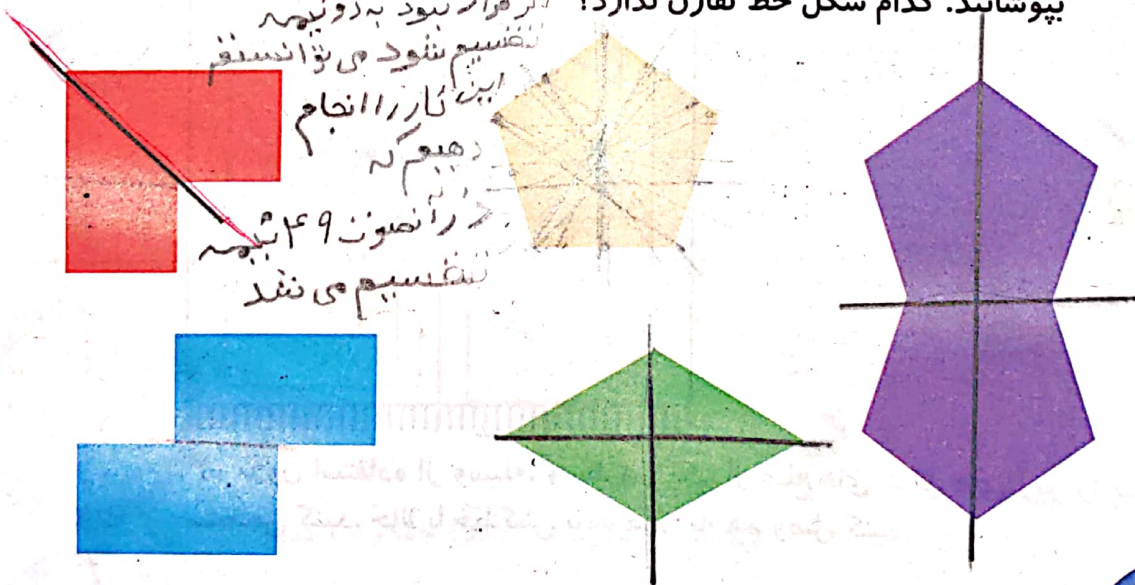 بپوشانند. کدام شکل خط تقارن ندارد؟
قرار نبود به دو نیمه
تقسیم شود می توانستیم
این کار را انجام
دهیم که
در آنصورت ۴۹ نیمه
تقسیم می شد